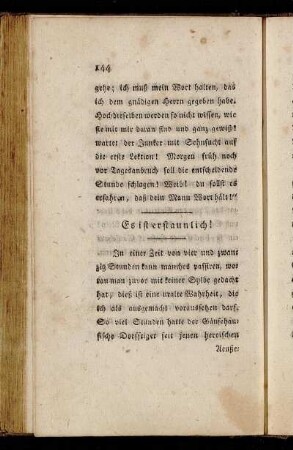 144
gehe; ich muß mein Wort halten, das
ich dem gnädigen Herrn gegeben habe.
Hochdieselben werden so nicht wissen, wie
sie mit mir daran sind und ganz gewiß
wartet der Junker mit Sehnsucht auf
die erste Lektion! Morgen früh noch
vor Tagesanbruch soll die entscheidende
Stunde schlagen! Weib! du sollst es
erfahren, daß dein Mann Wort hält!“
Es ist erstaunlich!
In einer Zeit von vier und zwan‐
zig Stunden kann manches passiren, wo‐
von man zuvor mit keiner Sylbe gedacht
hat; dieß ist eine uralte Wahrheit, die
ich als ausgemacht voraussetzen darf.
So viel Stunden hatte der Gänsehau‐
sische Dorffriger seit jenen heroischen
Aeuße‐